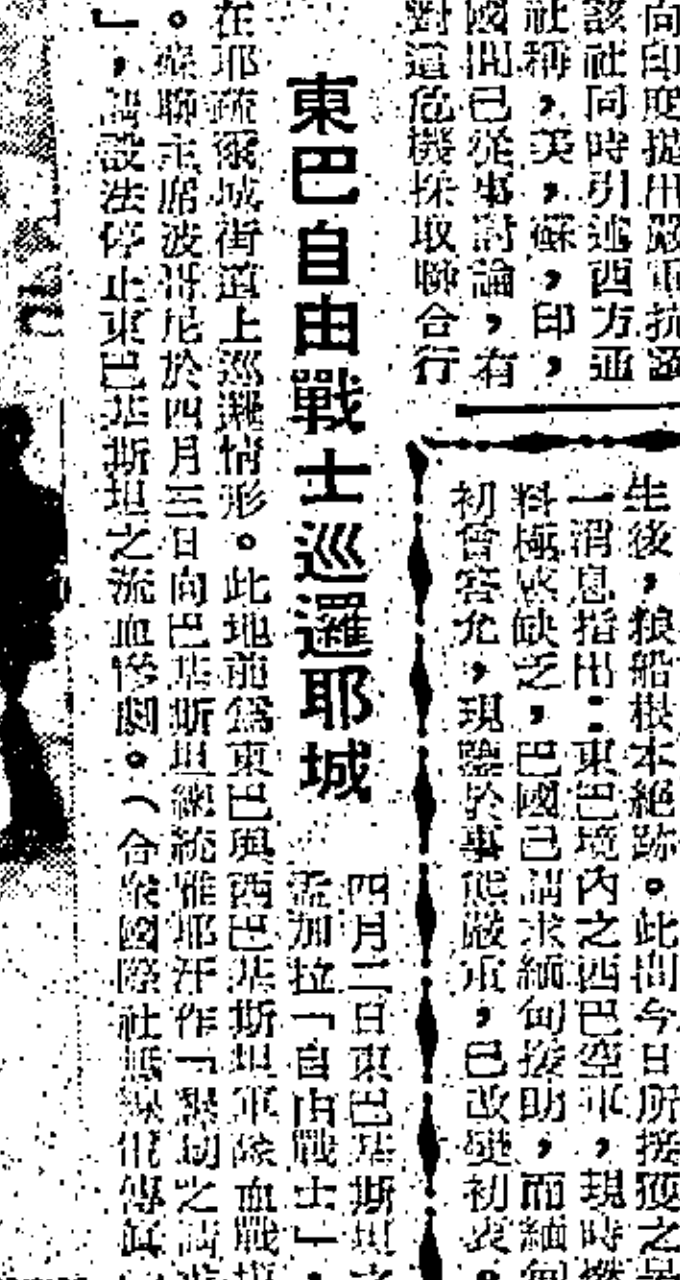 向印度提出嚴重抗議
該社同時引述西方通
社稱，美，蘇，印，
國間已從事討論，有
對這危機採取聯合行
生後，粮船根本絕跡。此間今日所接獲之
一消息指出：東巴境內之西巴空軍，現時燃
料極感缺乏，巴國已請求緬甸援助，而緬甸
初曾容允，現鑒於事態嚴重，已改變初衷。
東巴自由戰士巡邏耶城
四月二日東巴基斯坦
孟加拉「自由戰士」，
在耶疏爾城街道上巡邏情形。此地前爲東巴與西巴基斯坦軍隊血戰
。蘇聯主席波哥尼於四月三日向巴基斯坦總統雅耶汗作「緊切之請求
」，請設法停止東巴基斯坦之流血慘劇。（合衆國際社無線電傳真